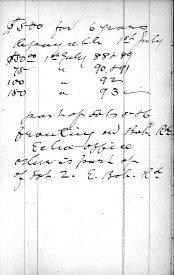 $500 for 6 years
repayable 1st July
$50.00 1st July 88 + 89
75 " 90 & 91
100 " 92
150 " 93
part of Lots 5 & 6
fronting on Bob. Rd.
Echo office
also as part of
of Lot 2. E. Bob. Rd.